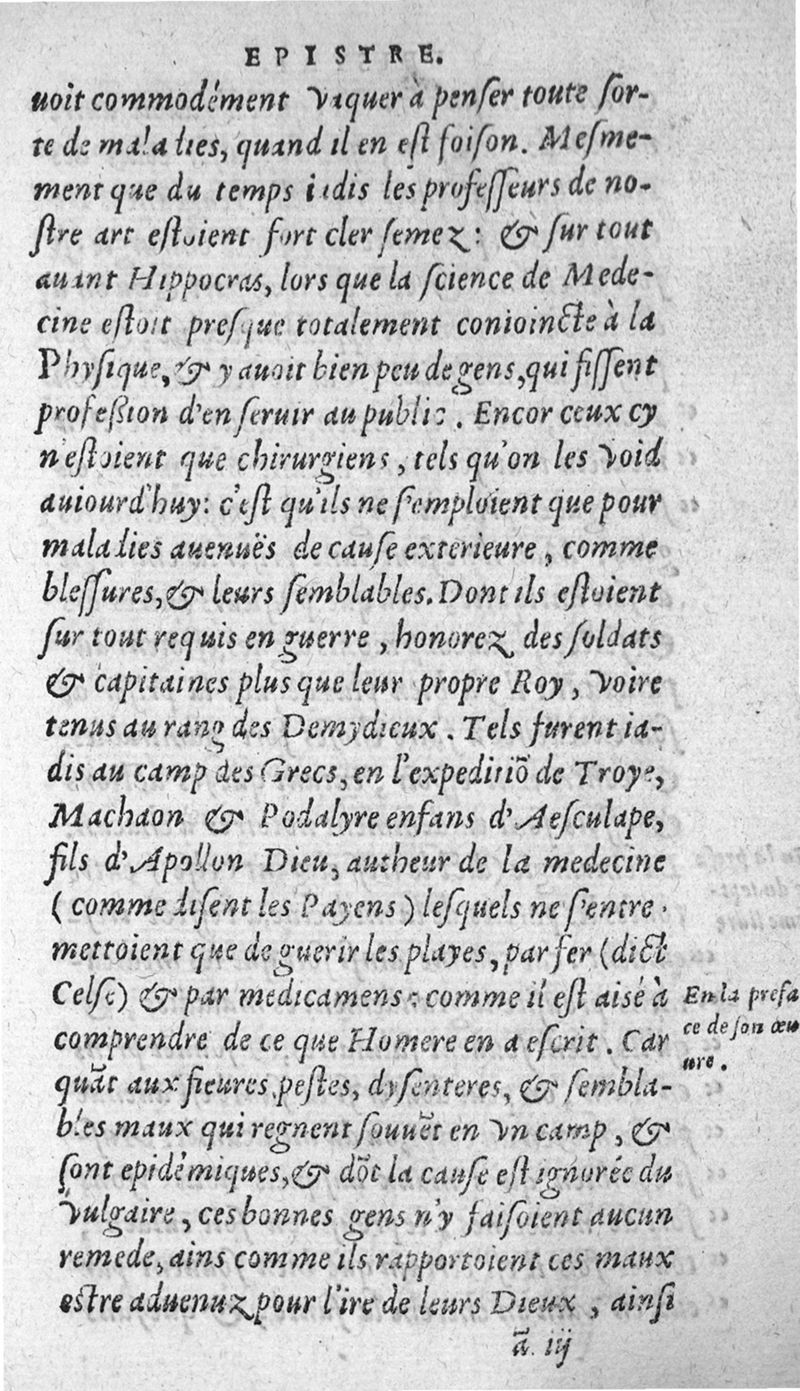 EPISTRE.
uoit commodément vaquer à penſer toute ſor-
te de maladies, quand il en eſt foiſon. Meſme-
ment que du temps iadis les profeſſeurs de no-
ſtre art eſtoient fort cler ſemez: & ſur tout
auant Hippocras, lors que la ſcience de Mede-
cine eſtoit preſque totalement conioincte à la
Phyſique, & y auoit bien peu de gens, qui fiſſent
profeſsion d'en ſeruir au public. Encor ceux cy
n'eſtoient que chirurgiens, tels qu'on les void
auiourd'huy: c'eſt qu'ils ne ſ'emploient que pour
maladies auenuës de cauſe exterieure, comme
bleſſures, & leurs ſemblables. Dont ils eſtoient
ſur tout requis en guerre, honorez des ſoldats
& capitaines plus que leur propre Roy, voire
tenus au rang des Demydieux. Tels furent ia-
dis au camp des Grecs, en l'expeditiõ de Troye,
Machaon & Podalyre enfans d'Aeſculape,
fils d'Apollon Dieu, autheur de la medecine
(comme diſent les Payens) leſquels ne ſ'entre-
mettoient que de guerir les playes, par fer (dict
Celſe) & par medicamens: comme il eſt aisé à
comprendre de ce que Homere en a eſcrit. Car
quãt aux fieures, peſtes, dyſenteres, & ſembla-
bles maux qui regnent ſouuẽt en vn camp, &
ſont epidémiques, & dõt la cauſe eſt ignorée du
vulgaire, ces bonnes gens n'y faiſoient aucun
remede, ains comme ils rapportoient ces maux
eſtre aduenuz pour l'ire de leurs Dieux, ainſi
ã. iij
En la prefa
ce de ſon œu
ure.